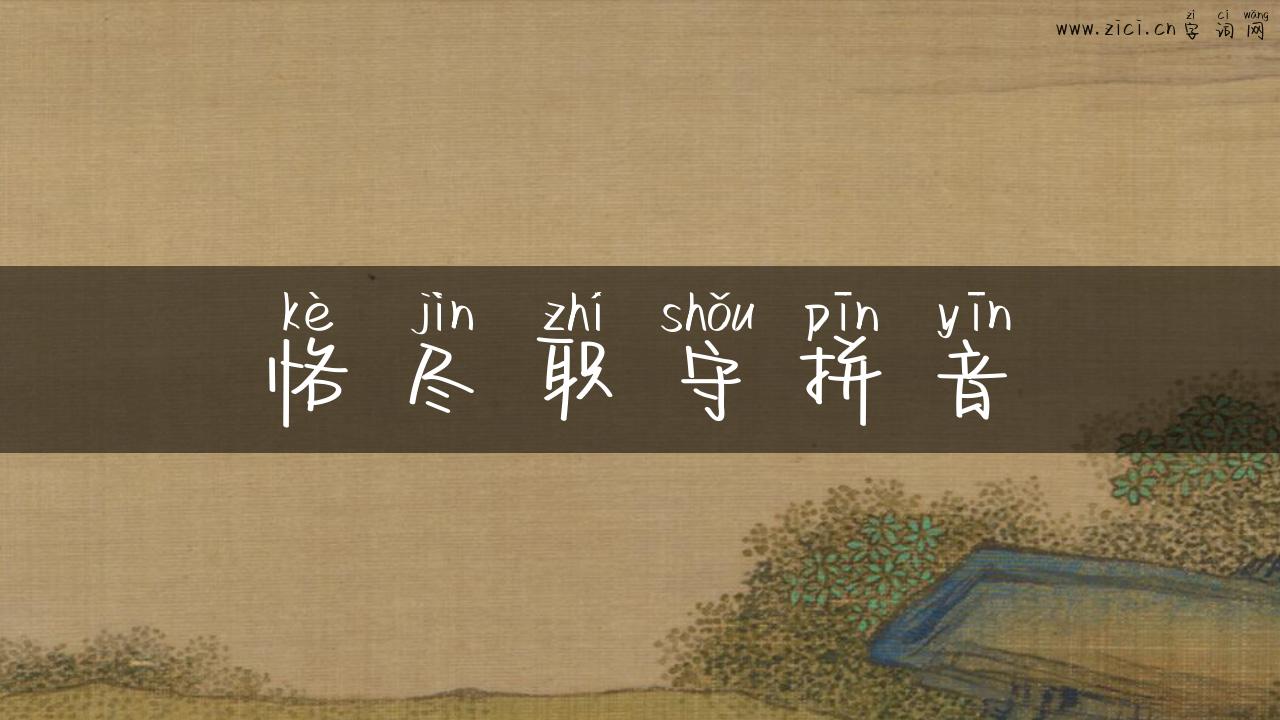 zì cí wǎng
www.zici.cn字词网
kè jìn zhí shǒu pīn yīn
恪尽职守拼音